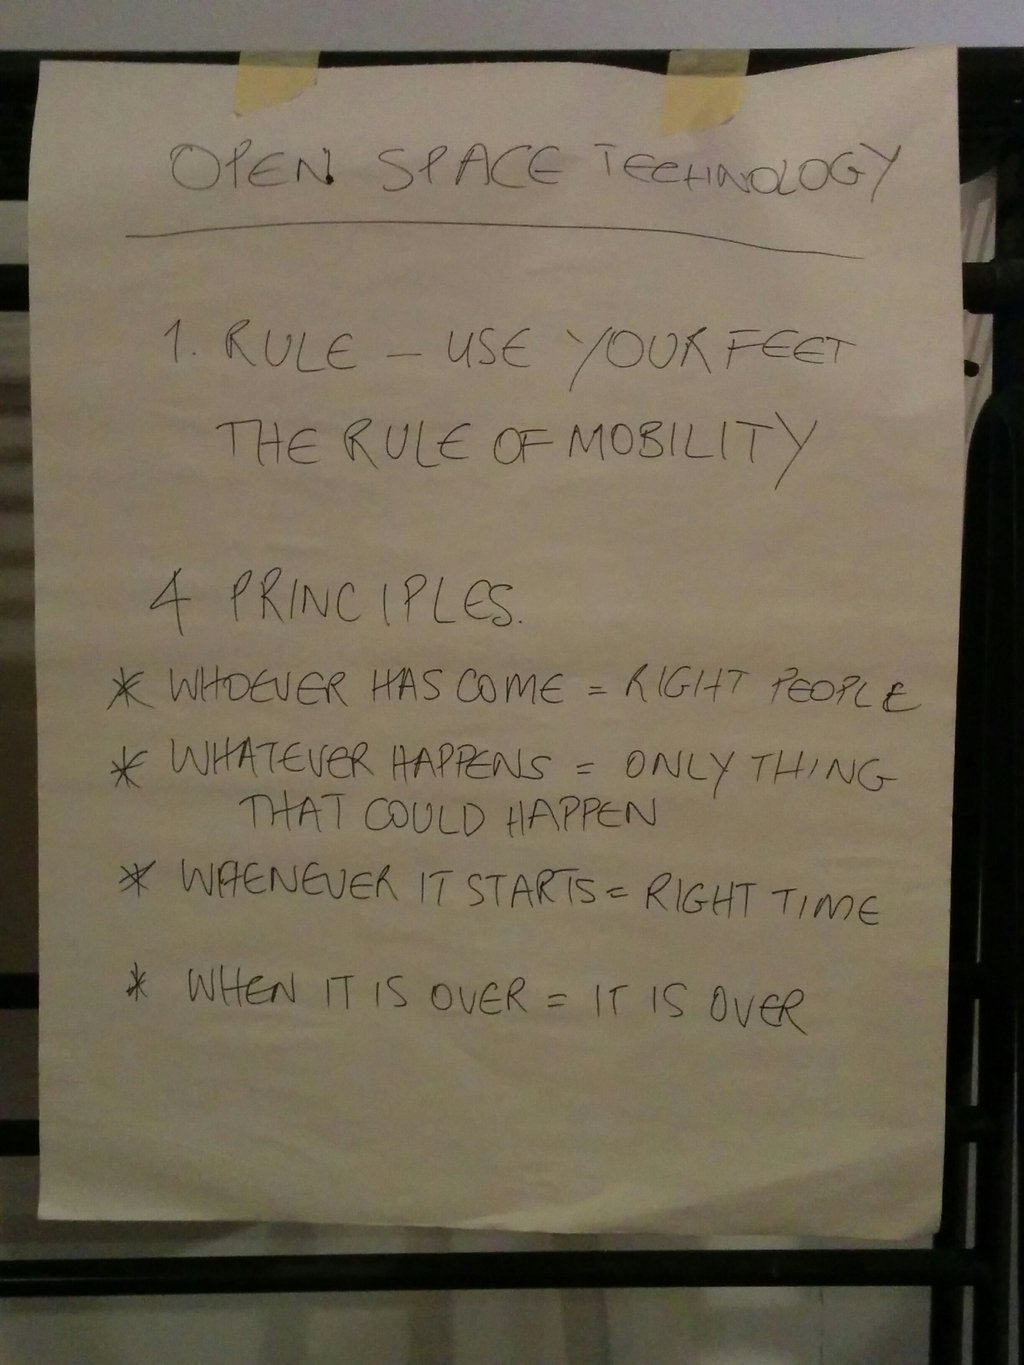 OPEN SPACE TECHNOLOGY
1. RULE - USE YOUR FEET
THE RULE OF MOBILITY
4 PRINCIPLES.
* WHOEVER HAS COME = RIGHT PEOPLE
* WHATEVER HAPPENS = ONLY THING
THAT COULD HAPPEN
* WHENEVER IT STARTS = RIGHT TIME
* WHEN IT IS OVER = IT IS OVER